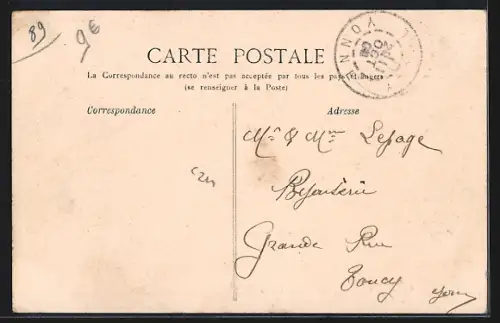 89
9€
CARTE POSTALE
La Correspondance au recto n'est pas acceptée par tous les pays étrangers
(se renseigner à la Poste)
Correspondance
Adresse
YONNE
Mr & Mme Lepage
Bijouterie
Grande Rue
Toucy
Yonne